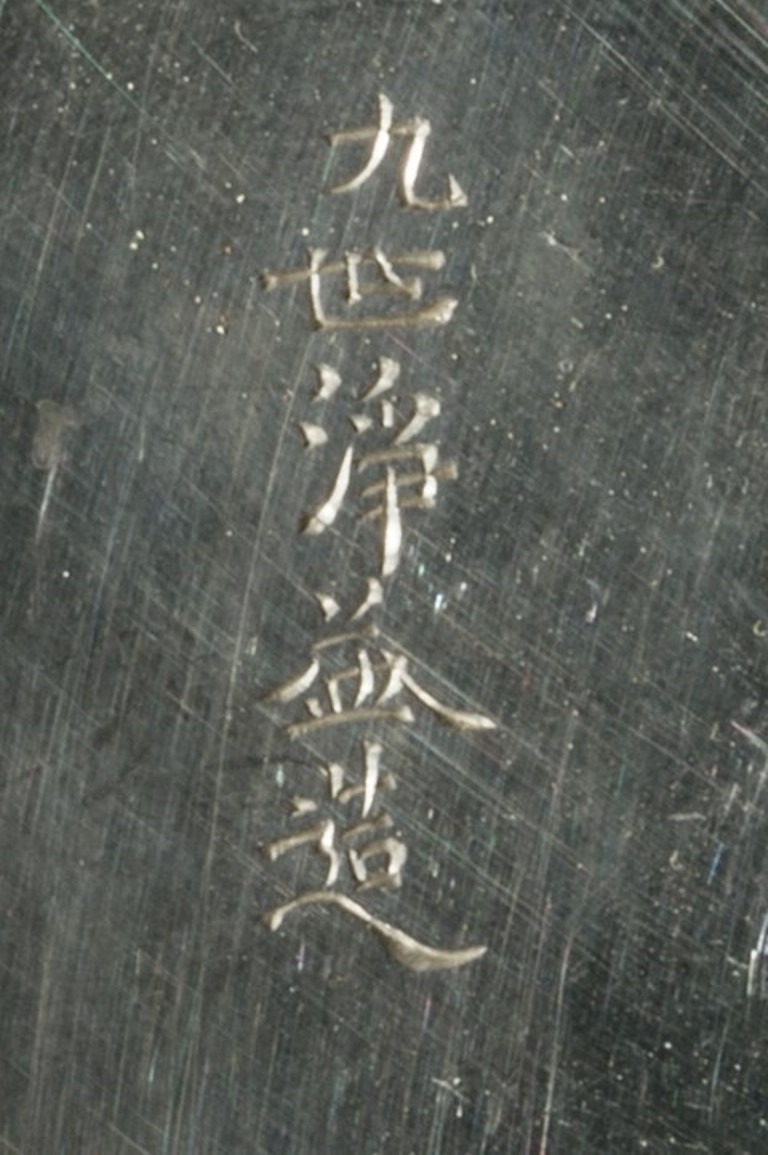 九世淨益造